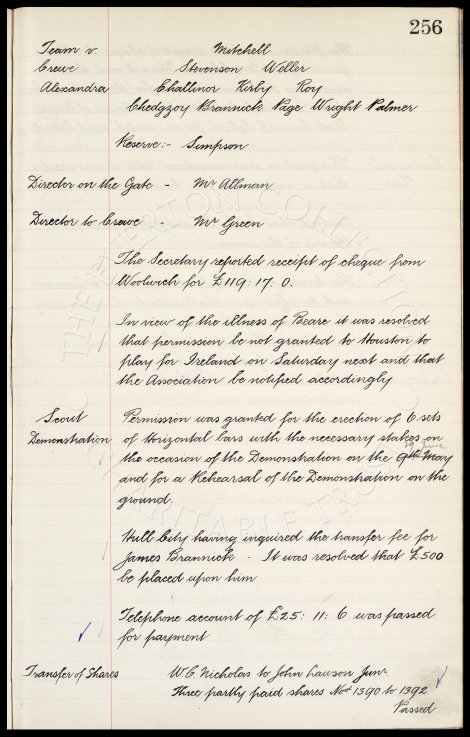 256
Team v Mitchell
Crewe Stevenson Weller
Alexandra Challinor Kirby Roy
Chedgzoy Brannick Page Wright Palmer
Reserve:- Simpson
Director on the Gate - Mr Allman
Director to Crewe - Mr Green
The Secretary reported receipt of cheque from
Woolwich for £119: 17: 0.
In view of the illness of Beare it was resolved
that permission be not granted to Houston to
play for Ireland on Saturday next and that
the Association be notified accordingly
Scout Permission was granted for the erection of 6 sets
Demonstration of Horizontal bars with the necessary stakes on
the occasion of the Demonstration on the 9th May
June
and for a Rehearsal of the Demonstration on the
ground.
Hull City having inquired the transfer fee for
James Brannick - It was resolved that £500
be placed upon him
Telephone account of £25: 11: 6 was passed
for payment
Transfer of Shares W.C. Nicholas to John Lawson Junr
Three partly paid shares Nos 1390 to 1392
Passed
THE EVERTON COLLECTION
CHARITABLE TRUST